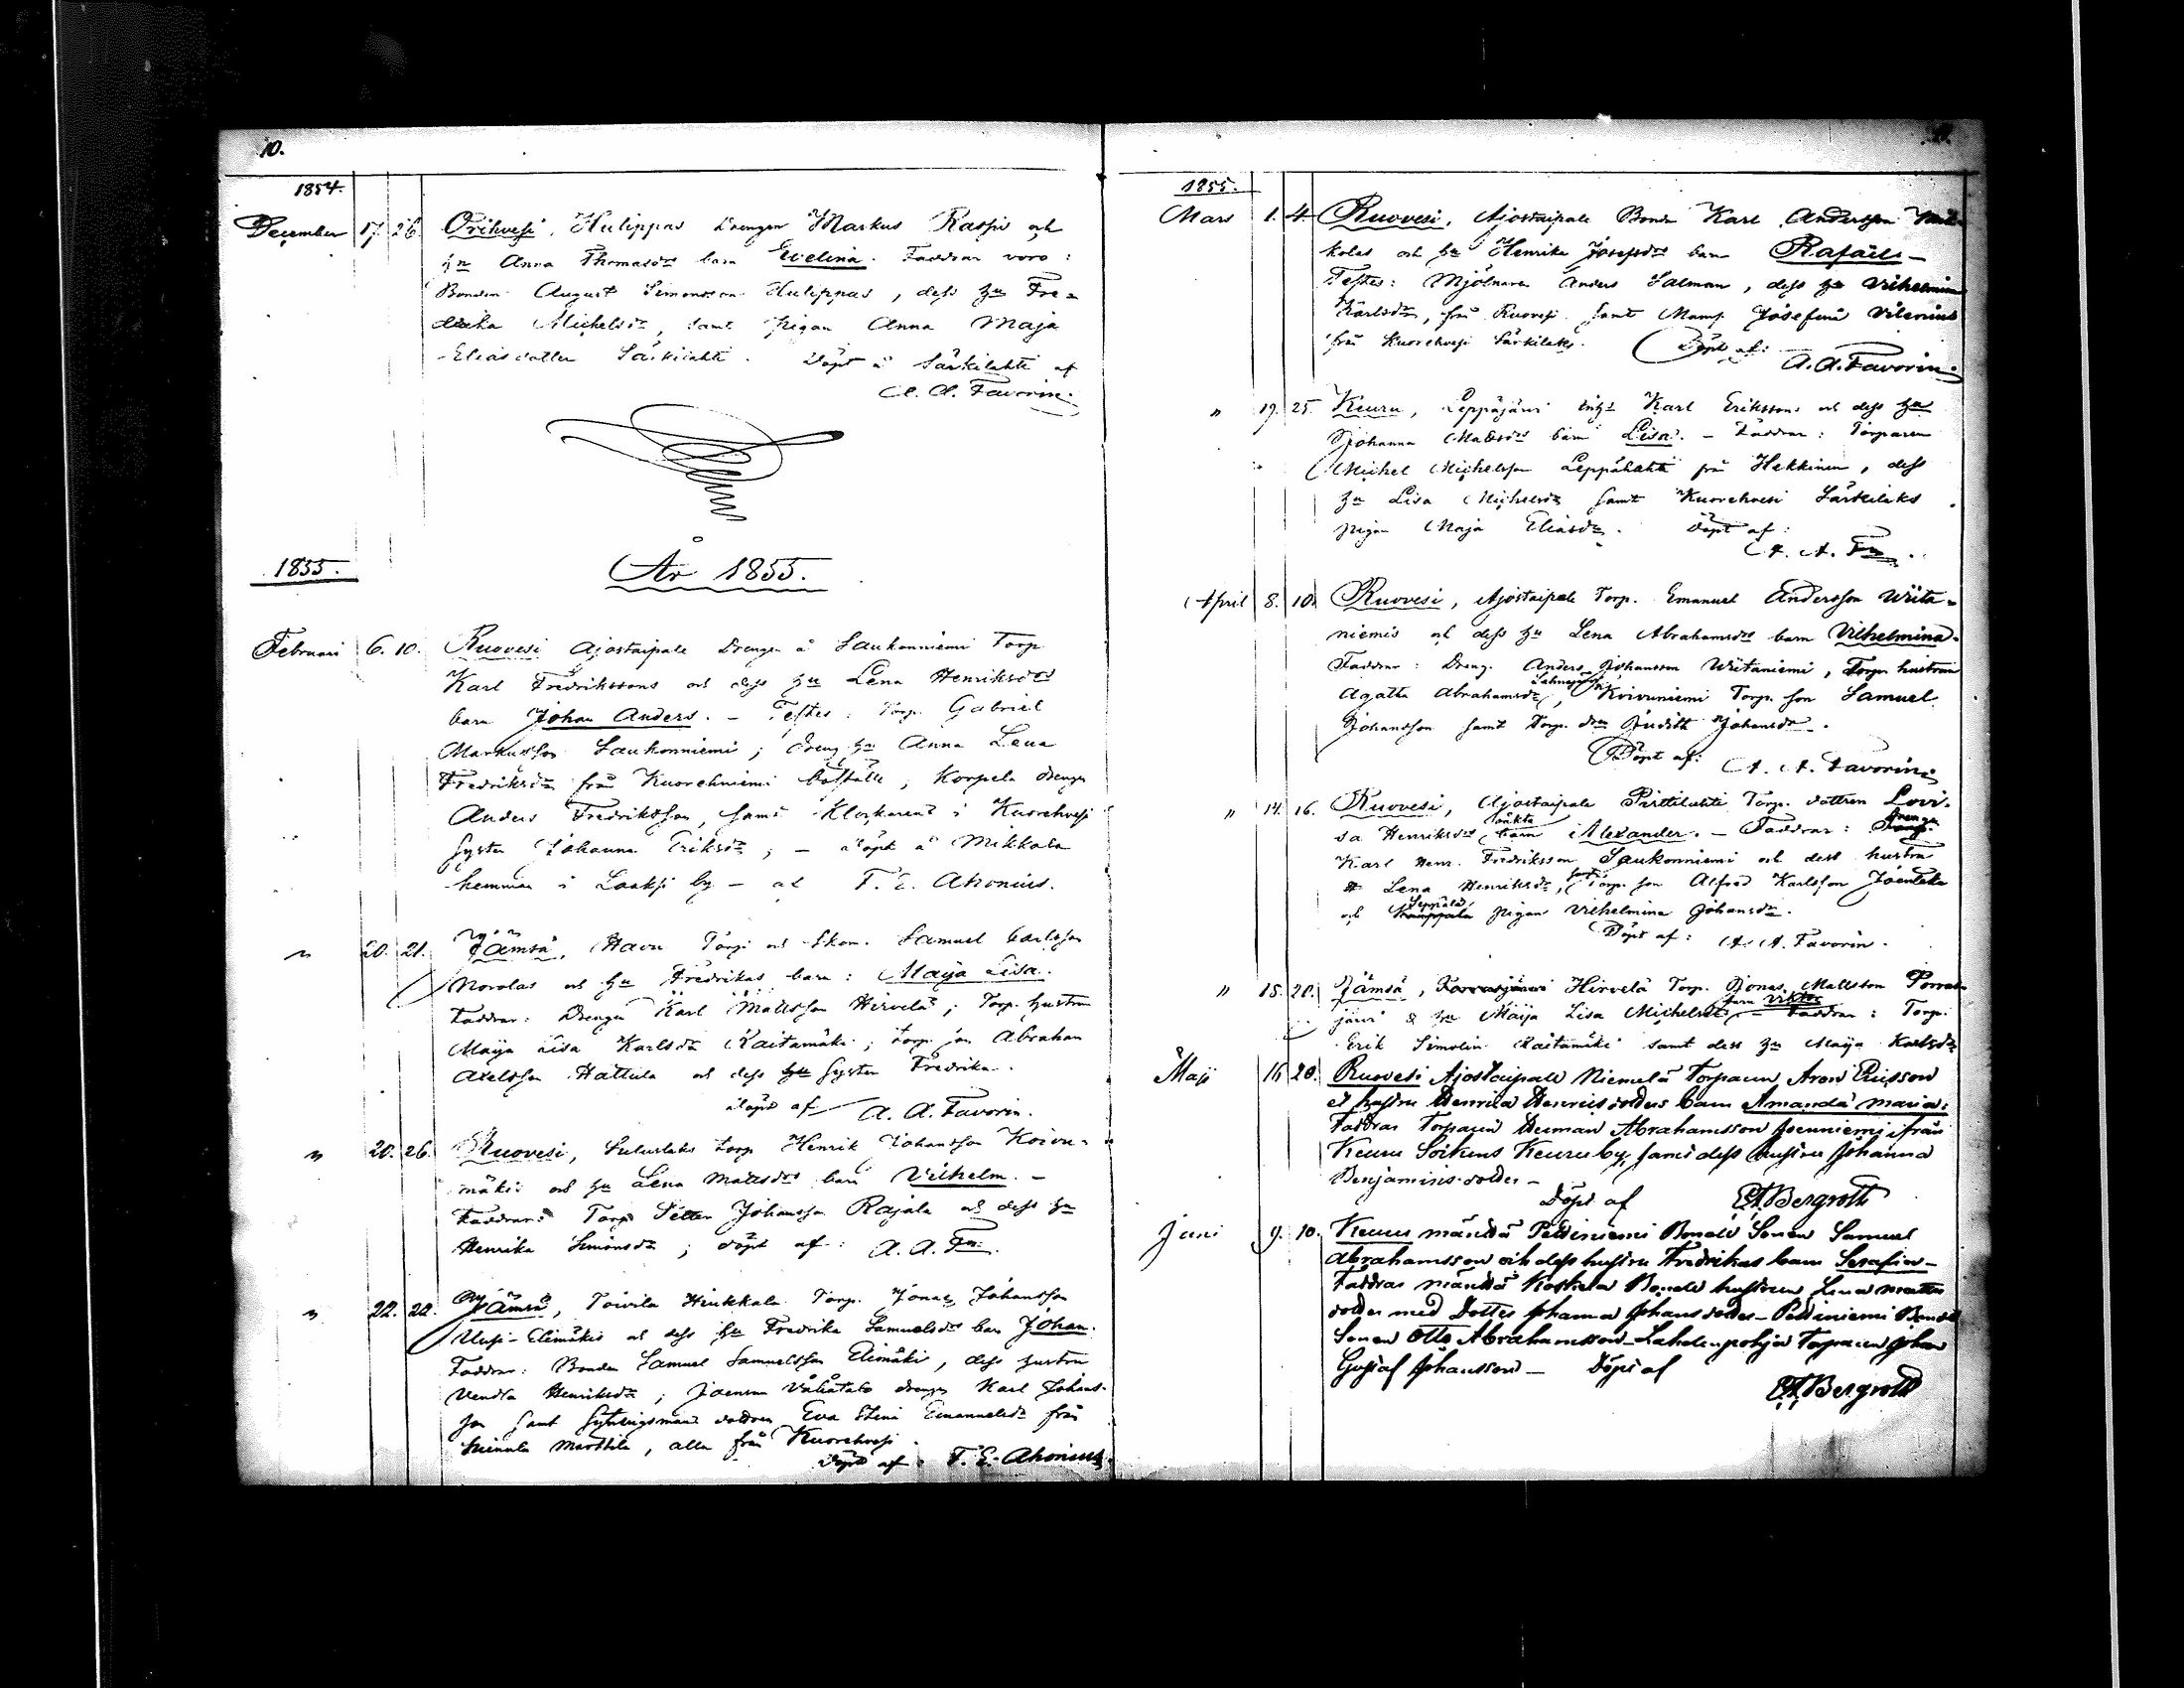 10.
1854.
December 17. 26. Orihvesi, Hulippas Drengen Markus Raspis och
hu Anna Thomasdrs barn Evelina. Faddrar voro:
Bonden August Simonsson Hulippas, dess hu Fre-
drika Michelsdr, samt pigan Anna Maja
Eliasdotter Särkilahti. Döpt i Särkilahti af
A. A. Favorin.
1855.
År 1855.
Februari 6. 10. Ruovesi Ajostaipale Drengen å Saukonniemi Torp
Karl Fredrikssons och dess hu Lena Henriksdrs
barn Johan Anders. – Testes: Torp. Gabriel
Markusson Saukonniemi; Dreng hu Anna Lena
Fredriksdr från Kuorehniemi Boställe, Korpela drengen
Anders Fredriksson, samt Klockarens i Kuorehvesi
syster Johanna Eriksdr; – döpt å Mikkola
hemman i Laaksi by – af F. E. Ahonius.
" 20. 21. Jämsä, Havu Torp. och Skom. Samuel Carlsson
Norolas och hu Fredrikas barn: Maija Lisa.
Faddrar: Drengen Karl Mattsson Hirvelä; Torp. hustrun
Maija Lisa Karlsdr Raitamäki; torp. son Abraham
Axelsson Hattula och dess hu syster Fredrika.
döpt af A. A. Favorin.
" 20. 26. Ruovesi, torp Henrik Johansson Koivu-
mäkis och hu Lena Mattsdrs barn Vilhelm. –
Faddrar: Torp. Petter Johansson Rajala och dess hu
Henrika Simonsdr; döpt af: A. A. Fn.
" 22. 22. Jämsä, Toivila Hinkkala Torp. Jonas Johansson
Uusi-Elimäkis och dess hu Fredrika Samuelsdrs barn Johan.
Faddrar: Bonden Samuel Samuelsson Elimäki, dess hustru
Vendla Henriksdr; drengen Karl Johans-
son samt dottren Eva Stina Emanuelsdr från
Marttila, alla från Kuorehvesi.
Döpt af F. E. Ahonius.
1855.
Mars 1. 4. Ruovesi, Ajostaipale Bonden Karl Andersson
kolas och hu Henrika Josefsdrs barn Rafaël –
Testes: Mjölnaren Anders Salman, dess hu Vilhelmina
Karlsdr, från Ruovesi samt Mamsell Josefina
från Kuorehvesi Särkilaks. Döpt af:
A. A. Favorin.
" 19. 25. Keuru, Leppäjärvi Karl Erikssons och dess hu
Johanna Mattsdrs barn Lisa. – Faddrar: Torparen
Michel Michelsson Leppälahti från Hekkinen, dess
hu Lisa Michelsdr samt Kuorehvesi Särkilaks
pigan Maja Eliasdr. Döpt af:
A. A. Fn.
April 8. 10. Ruovesi, Ajostaipale Torp. Emanuel Andersson Wiita-
niemis och dess hu Lena Abrahamsdrs barn Vilhelmina.
Faddrar: Dreng. Anders Johansson Wiitaniemi, Torp. hustrun
Agatha Abrahamsdr, Koivuniemi Torp. son Samuel
Johansson samt Torp. drn Judith Johansdr.
Döpt af: A. A. Favorin
" 14. 16. Ruovesi, Ajostaipale Pirttilahti Torp. dottren Lovi-
sa Henriksdrs oäkta barn Alexander. – Faddrar: Drengen
Karl Henr. Fredriksson Saukonniemi och dess hustru
Lena Henriksdr, Torp. son Alfred Karlsson
och Seppälä pigan Vilhelmina Johansdr.
Döpt af: A. A. Favorin.
" 15. 20. Jämsä, Hirvelä Torp. Jonas Mattsson Porras-
järvi & hu Maija Lisa Michelsdrs barn Viktor – Faddrar: Torp.
Erik Simolin Raitamäki samt dess hu Maija Karlsdr
Maji 15 20. Ruovesi Ajostaipale Niemelä Torparen Aron Ericsson
et hustru Henrica Henricsdotters barn Amanda Maria:
Faddrar Torparen Herman Abrahamsson Joenniemi ifrån
Keuru Soikens Keuru by, samt dess hustru Johanna
Benjaminsdotter –
Döpt af Bergroth
Juni 9. 10. Keuru mändä Peldiniemi Bonde Sonen Samuel
Abrahamsson och dess hustru Fredrikas barn Serafin –
Faddrar mändä Koskela Bonde hustrun Lena Matts
dotter med Dotter Johanna Johansdotter – Peldiniemi Bonde
Sonen Otto Abrahamsson – Lahdenpohja Torparen Johan
Gustaf Johansson – Döpt af
Bergroth